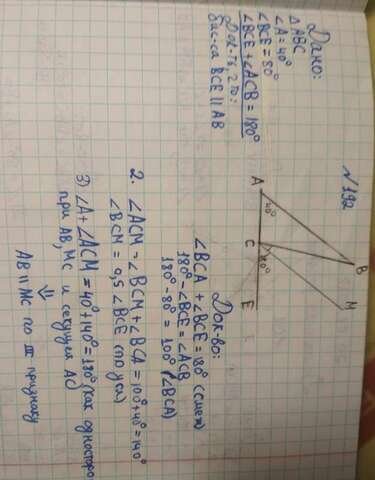 №192
Дано:
△ABC
∠A = 40°
∠BCE = 80°
∠BCE + ∠ACB = 180°
Док-ть, что:
бис-са BCE ∥ AB
A
40°
B
C
80°
M
E
Док-во:
∠BCA + ∠BCE = 180° (смеж)
180° - ∠BCE = ∠ACB
180° - 80° = 100° (∠BCA)
2. ∠ACM = ∠BCM + ∠BCA = 100° + 40° = 140°
∠BCM = 0,5 ∠BCE (по усл)
3) ∠A + ∠ACM = 40° + 140° = 180° (как односторо
при AB, MC и секущей AC)
⇓
AB ∥ MC по III признаку